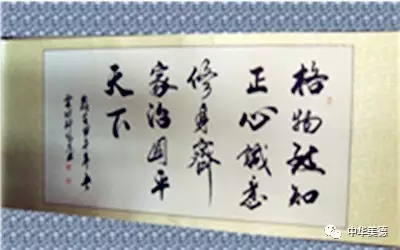 格物致知
正心诚意
修身齊
家治国平
天下
中华美德